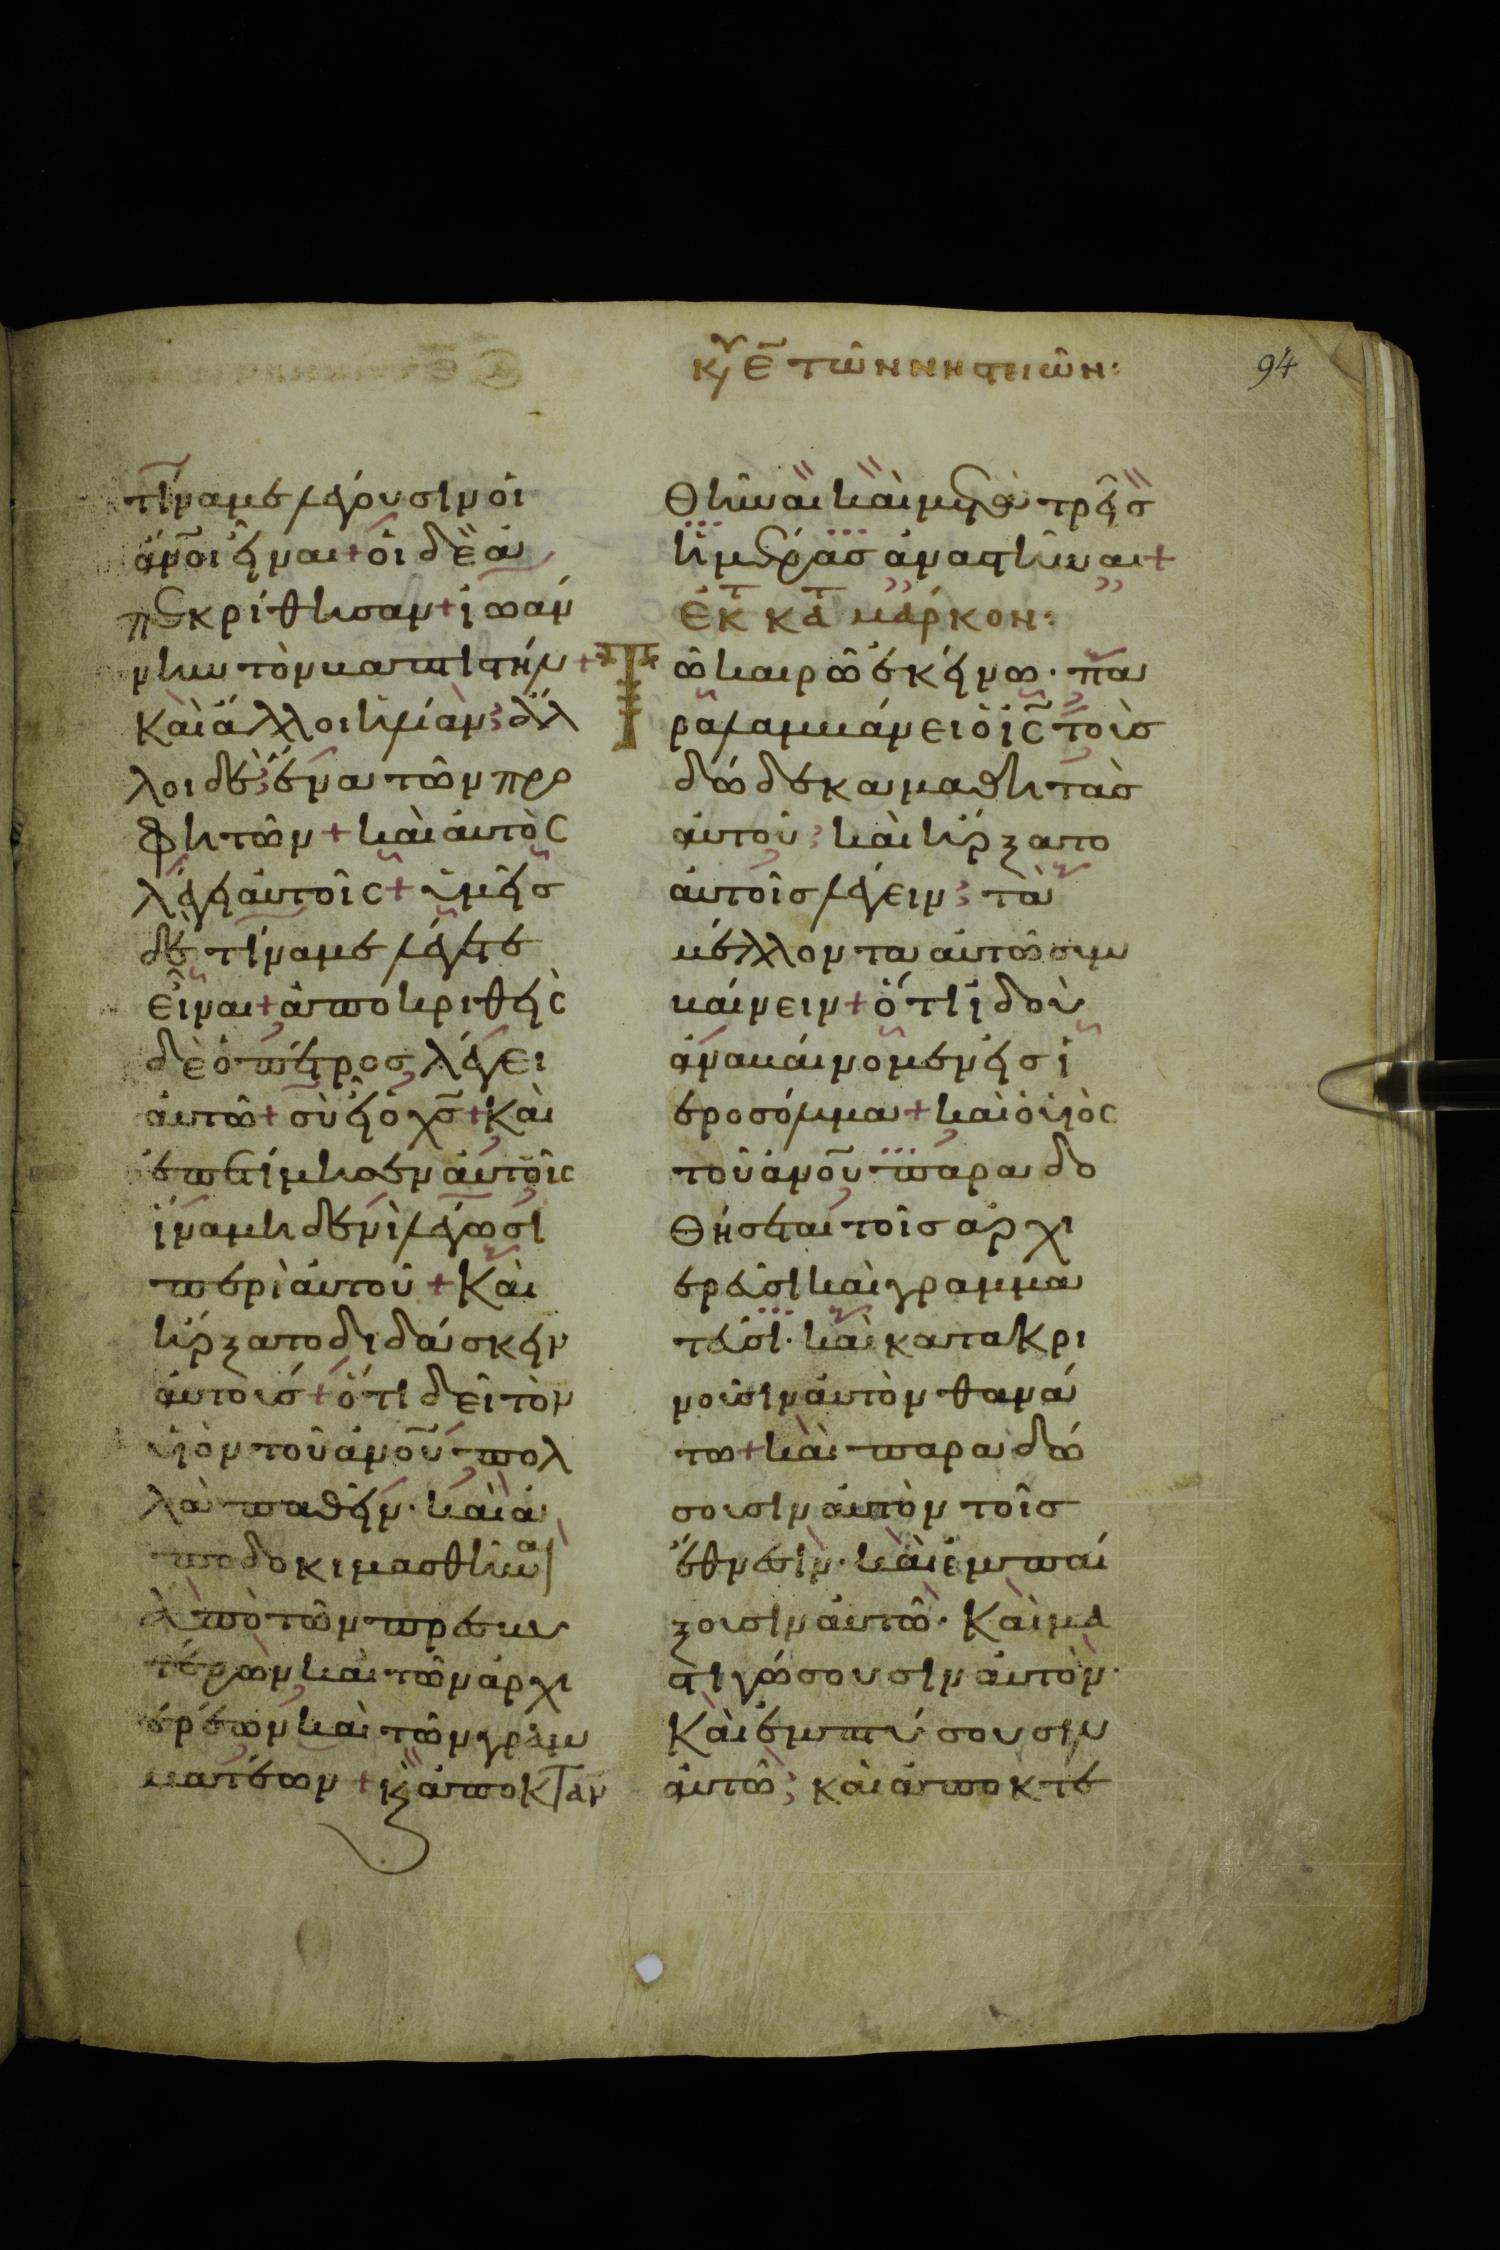 κυ ε̄ τῶν νηστειῶν:
94
τίνα με λέγουσιν οἱ
ἄν̅οι εἶναι + οἱ δὲ ἀ
πεκρίθησαν + ἰωάν
νην τὸν βαπτιστήν +
καὶ ἄλλοι ἠλίαν; ἄλ
λοι δὲ; ἕνα τῶν προ
φητῶν + καὶ αὐτὸς
λέγει αὐτοῖς + ὑμεῖς
δὲ τίνα με λέγετε
εἶναι + ἀποκριθεὶς
δὲ ὁ πέτρος λέγει
αὐτῶ + σὺ εἶ ὁ χς̅ + καὶ
ἐπετίμησεν αὐτοῖς
ἵνα μηδενὶ λέγωσι
περὶ αὐτοῦ + καὶ
ἤρξατο διδάσκειν
αὐτοὺς + ὅτι δεῖ τὸν
υἱὸν τοῦ ἀν̅ου πολ
λὰ παθεῖν · καὶ ἀ
ποδοκιμασθῆναι
ἀπὸ τῶν πρεσβυ
τέρων καὶ τῶν ἀρχι
ερέων καὶ τῶν γραμ
ματέων + κ̀ ἀποκταν
θῆναι καὶ μετὰ τρεῖς
ἡμέρας ἀναστῆναι +
ἐκ τ κατ μάρκον:
Τῶ καιρῶ ἐκείνω · πα
ραλαμβάνει ὁ ις̅ τοὺς
δώδεκα μαθητὰς
αὐτοῦ; καὶ ἤρξατο
αὐτοῖς λέγειν; τὰ
μέλλοντα αὐτῶ συμ
βαίνειν + ὅτι ἰδοὺ
ἀναβαίνομεν εἰς ἱ
εροσόλυμα + καὶ ὁ υἱὸς
τοῦ ἀν̅ου παραδο
θήσεται τοῖς ἀρχι
ερεῦσι καὶ γραμμα
τεῦσι · καὶ κατακρι
νοῦσιν αὐτὸν θανά
τω + καὶ παραδώ
σουσιν αὐτὸν τοῖς
ἔθνεσιν · καὶ ἐμπαί
ξουσιν αὐτῶ · καὶ μα
στιγώσουσιν αὐτὸν ·
καὶ ἐμπτύσουσιν
αὐτῶ; καὶ ἀποκτε